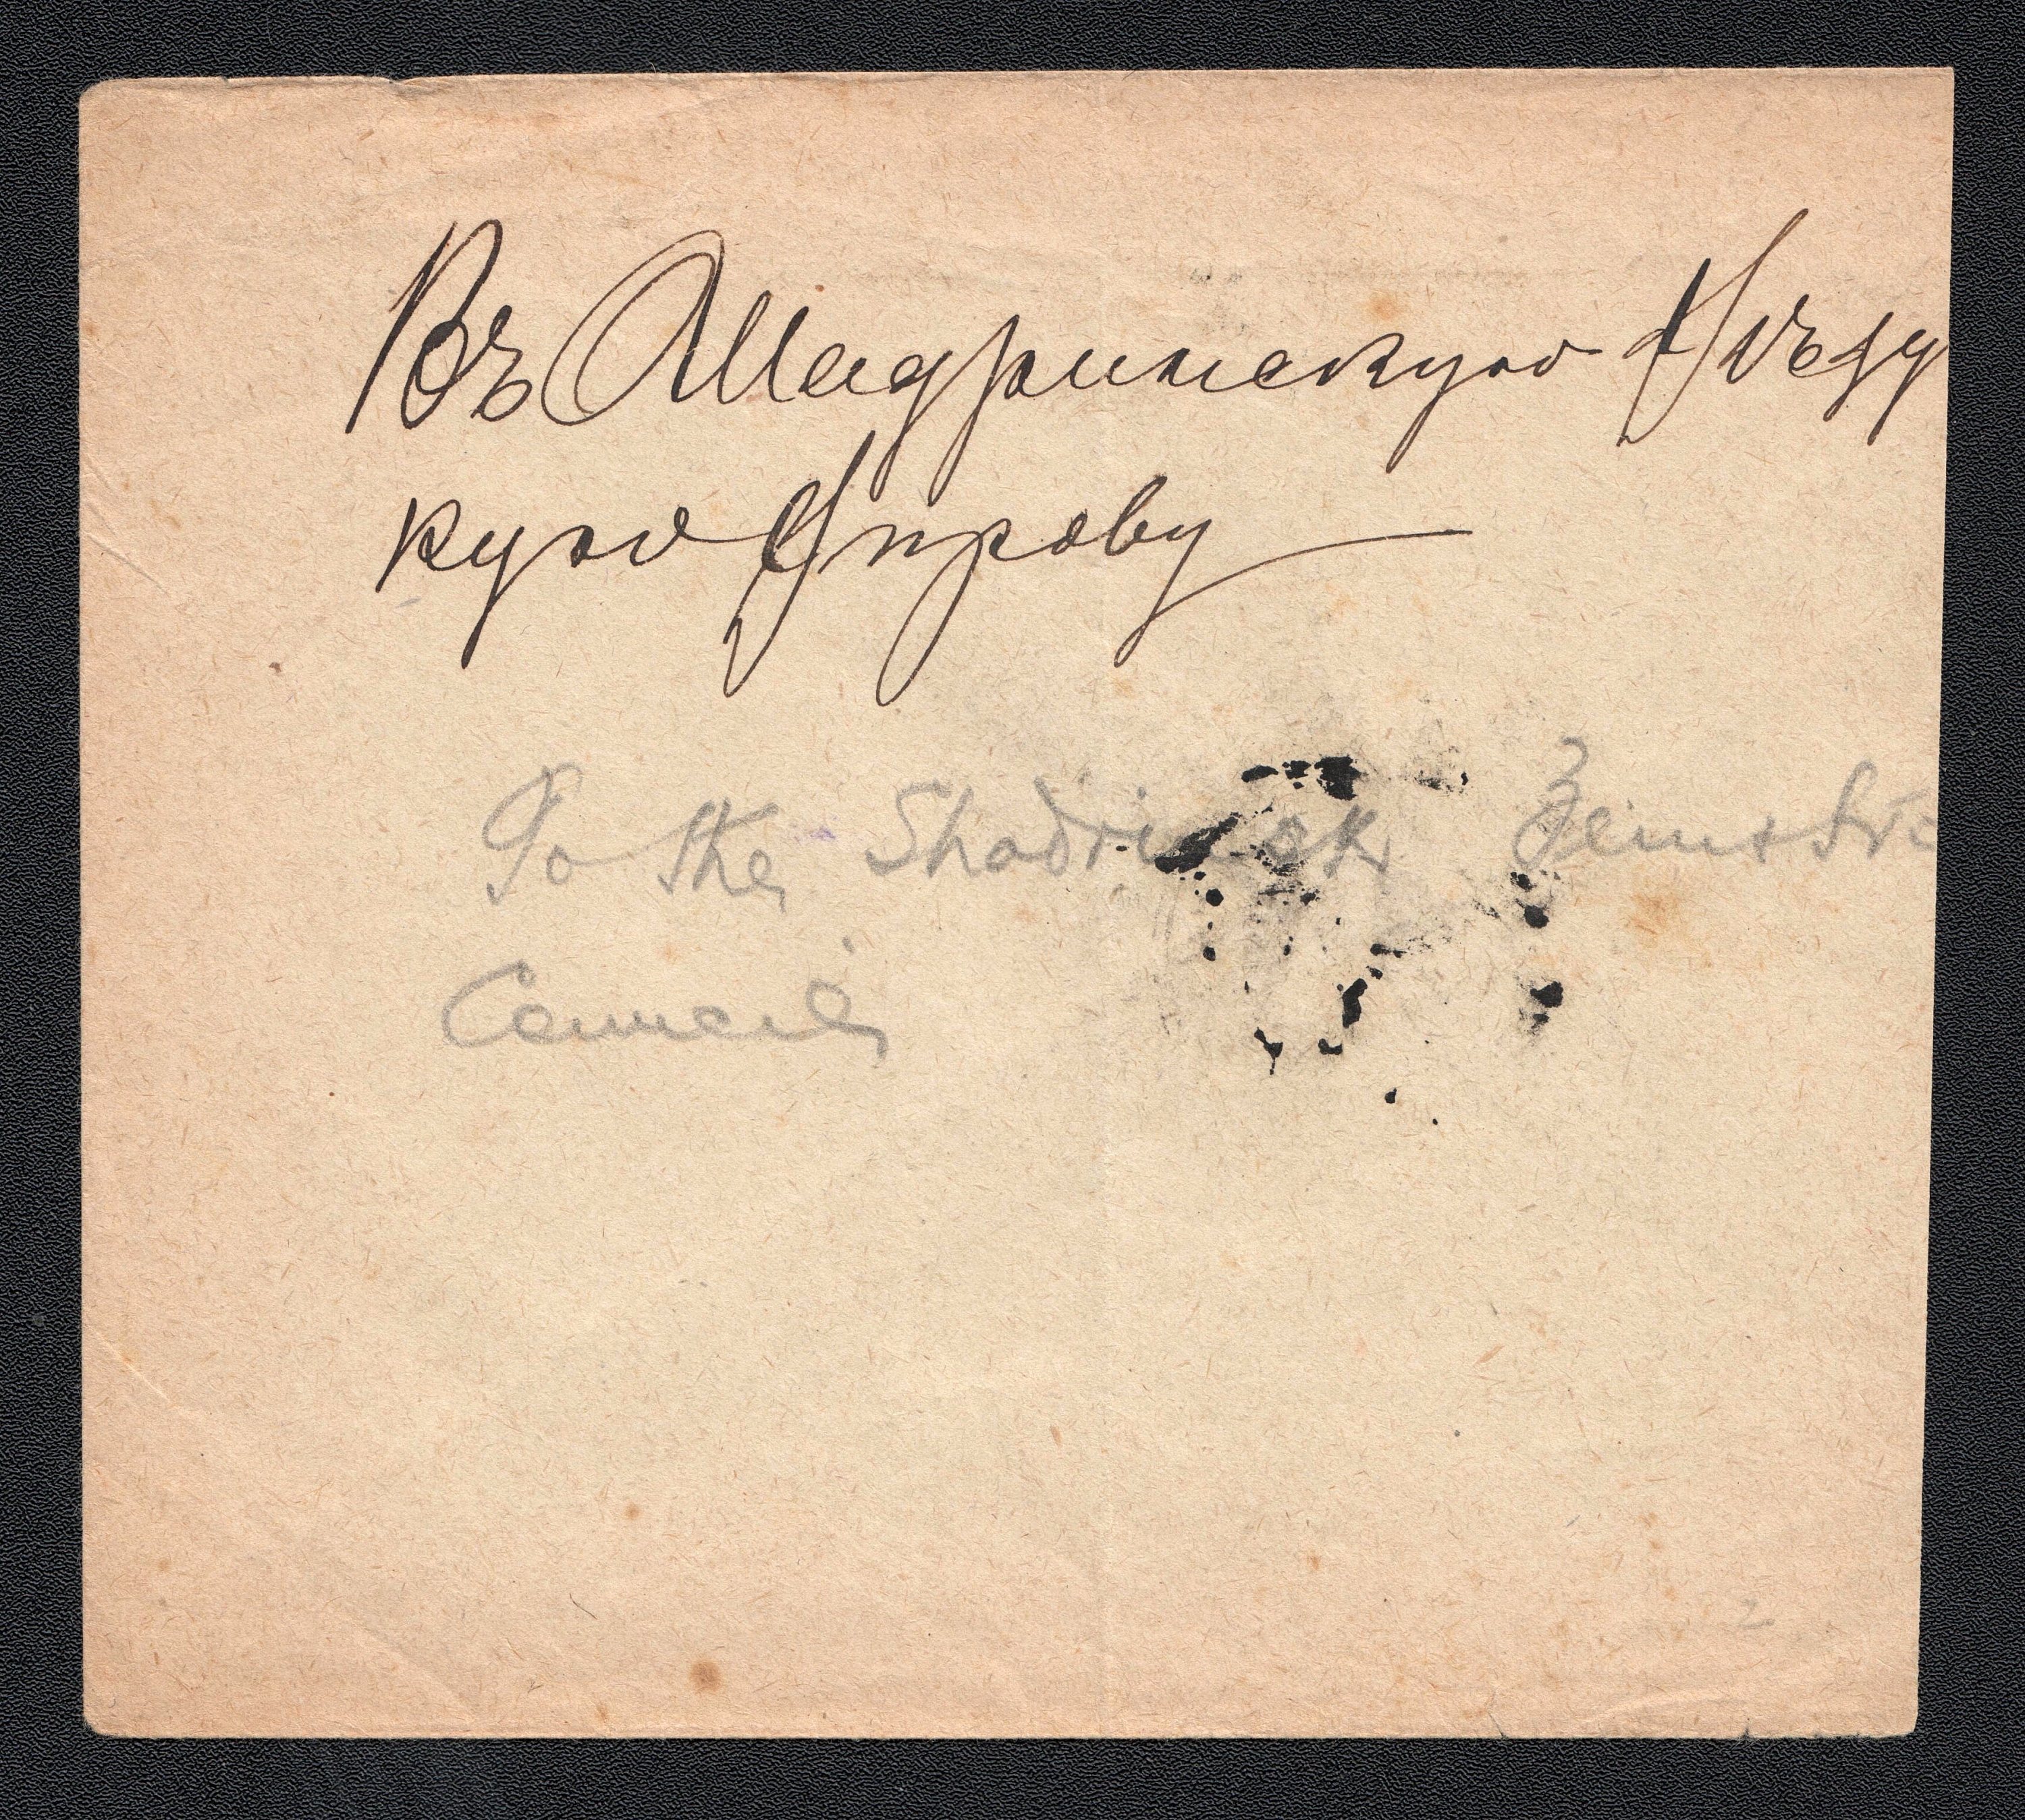 Въ Шадринскую Уѣзд
кую Управу
To the Shadrinsk Zemstvo
Council
2